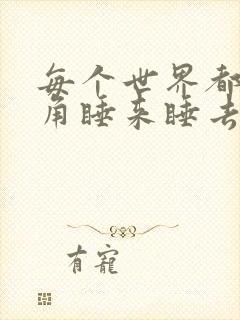 每个世界都
角睡来睡去
有宠